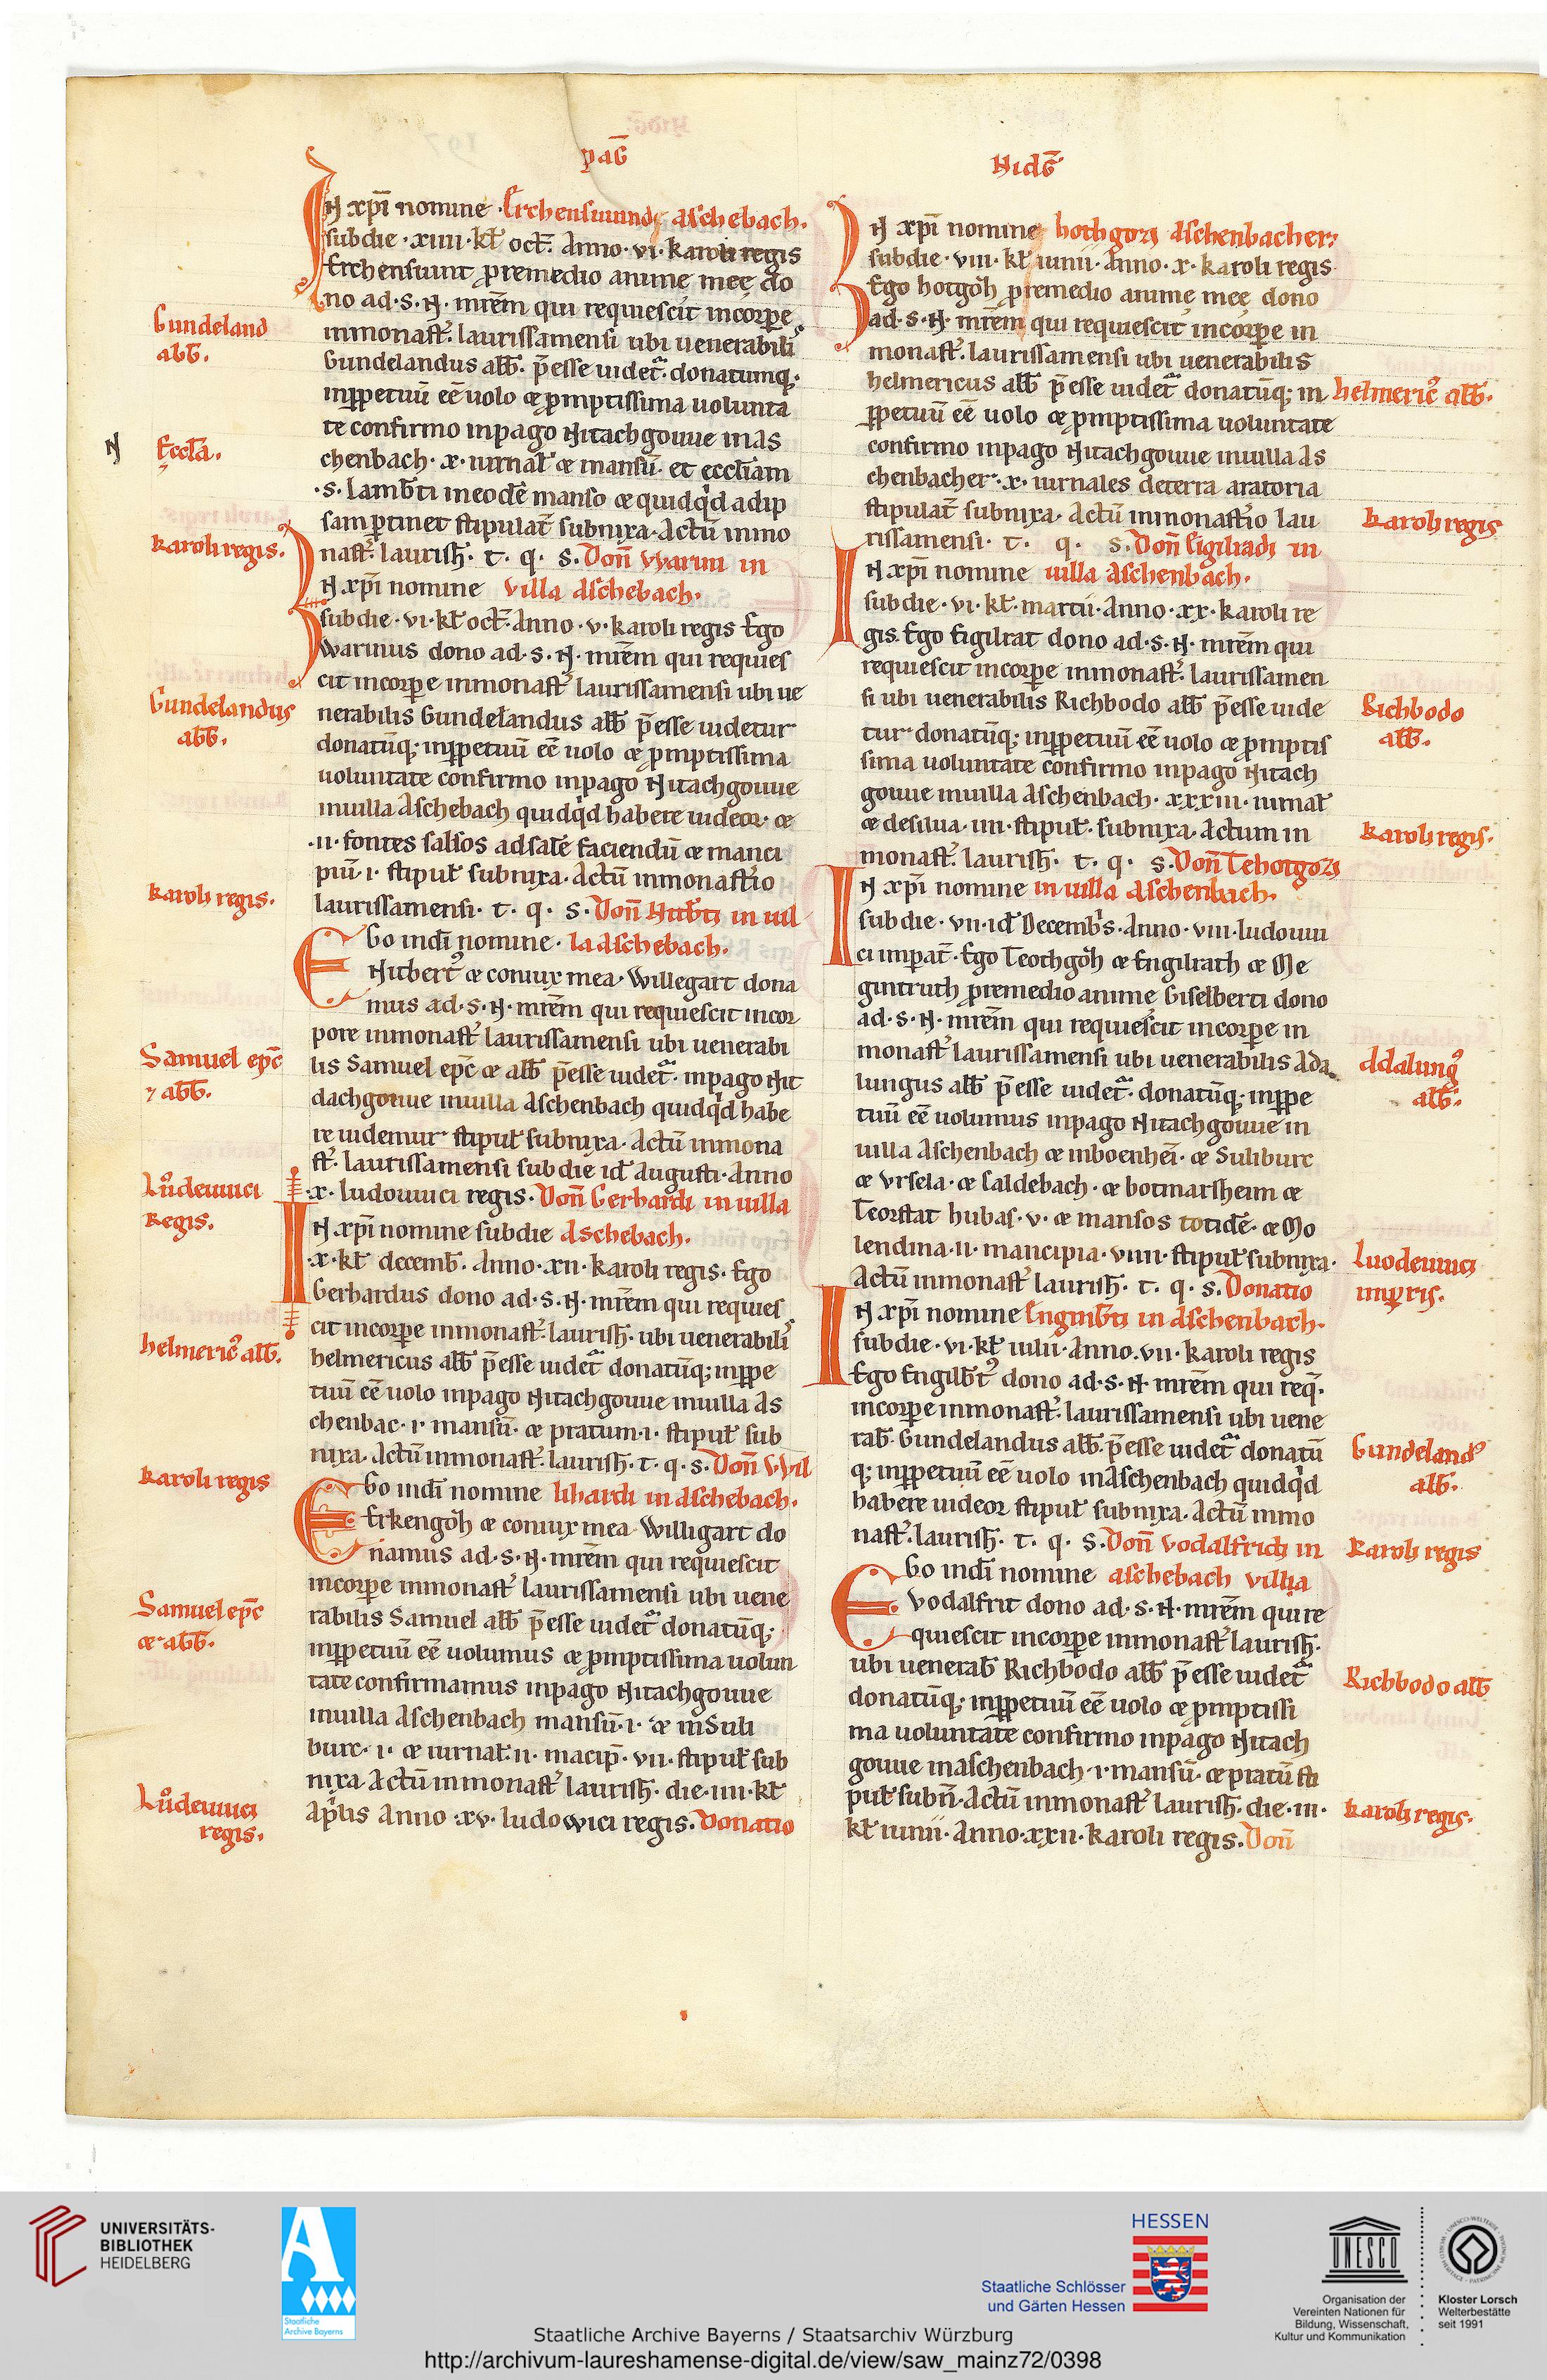 pag̅
Nidg̅
N xp̅i nomine · Erchensuuindę aschebach.
sub die · xiiii · kl̅ oct̅. Anno · vi · karoli regis
Erchensuint p̱remedio anime meę do
no ad · s · N · mr̅em qui requiescit incorp̱e
inmonast̅. laurissamensi ubi uenerabili
Gundelandus abb̅. p̅esse uidet̅. donatumq;
inp̱petuū eē uolo & p̱mptissima uolunta
te confirmo inpago Nitachgouue in as
chenbach · x · iurnal̅ & mansū · et eccl̅iam
· s · Lamb̅ti ineodē manso & quidq̇d adip
sam p̱tinet stipulat̅ subnixa · Actū inmo
nast̅. laurish̅. t. q. s. Don̅ Warini in
N xp̅i nomine villa Aschebach.
sub die · vi · kl̅ oct̅. Anno · v · karoli regis Ego
Warinus dono ad · s · N · mr̅em qui requies
cit incorp̱e inmonast̅ laurissamensi ubi ue
nerabilis Gundelandus abb̅ p̅esse uidetur
donatūq; inp̱petuū eē uolo & p̱mptissima
uoluntate confirmo inpago Nitachgouue
inuilla Aschebach quidq̇d habere uideor · &
· ii · fontes salsos adsalē faciendū & manci
piū · i · stipul̅ subnixa · Actū inmonast̅io
laurissamensi · t · q · s. Don̅ Nitb̅ti in uil
Go indī nomine · la Aschebach.
Nitbert᾿ & coniux mea · Willegart dona
mus ad · s · N · mr̅em qui requiescit incor
pore inmonast̅ laurissamensi ubi uenerabi
lis Samuel epc̅ & abb̅ p̅esse uidet̅. inpago Nit
dachgouue inuilla Aschenbach quidq̇d habe
re uidemur stipul̅ subnixa · Actū inmona
st̅. laurissamensi sub die id̅ Augusti · Anno
· x · ludouuici regis. Don̅ Gerhardi in uilla
N xp̅i nomine sub die Aschebach.
· x · kl̅ decemb̅. Anno · xii · karoli regis. Ego
Gerhardus dono ad · s · N · mr̅em qui requies
cit incorp̱e inmonast̅. laurish̅. ubi uenerabili
helmericus abb̅ p̅esse uidet̅ donatūq; inp̱pe
tuū eē uolo inpago Nitachgouue inuilla As
chenbac · i · mansū · & pratum · i · stipul̅ sub
nixa · Actū inmonast̅. laurish̅. t. q. s. Don̅ Wil
Go indī nomine lihardi in Aschebach.
Erkengoh̅ & coniux mea Willigart do
namus ad · s · N · mr̅em qui requiescit
incorp̱e inmonast̅ laurissamensi ubi uene
rabilis Samuel abb̅ p̅esse uidet̅ donatūq;
inp̱petuū eē uolumus & p̱mptissima uolun
tate confirmamus inpago Nitachgouue
inuilla Aschenbach mansū · i · & in Suli
burc · i · & iurnal̅. ii · macip̅ · vii · stipul̅ sub
nixa Actū inmonast̅ laurish̅. die · iiii · kl̅
ap̱lis Anno · xv · ludowici regis. Donatio
Gundeland
abb̅.
N
Eccl̅a.
karoli regis.
Gundelandus
abb̅.
karoli regis.
Samuel epc̅
⁊ abb̅.
Lůdeuuici
Regis.
helmeric᾿ abb̅.
karoli regis
Samuel epc̅
& abb̅.
Lůdeuuici
regis.
N xp̅i nomine hothgozi Aschenbacher:
sub die · viii · kl̅ iunii · Anno · x · karoli regis
Ego hotgoh̅ p̱remedio anime meę dono
ad · s · N · mr̅em qui requiescit incorp̱e in
monast̅. laurissamensi ubi uenerabilis
helmericus abb̅ p̅esse uidet̅ donatūq; in
p̱petuū eē uolo & p̱mptissima uoluntate
confirmo inpago Nitachgouue inuilla As
chenbacher · x · iurnales deterra aratoria
stipulat̅ subnixa · Actū inmonast̅io lau
rissamensi · t. q. s. Don̅ Eigilradi in
N xp̅i nomine uilla Aschenbach.
sub die · vi · kl̅ · martii · Anno · xx · karoli re
gis. Ego Eigilrat dono ad · s · N · mr̅em qui
requiescit incorp̱e inmonast̅. laurissamen
si ubi uenerabilis Richbodo abb̅ p̅esse uide
tur donatūq; inp̱petuū eē uolo & p̱mptis
sima uoluntate confirmo inpago Nitach
gouue inuilla Aschenbach · xxxiii · iurnal̅
& desilua · iiii · stipul̅. subnixa · Actum in
monast̅. laurish̅. t. q. s. Don̅ Tehotgozi
N xp̅i nomine in uilla Aschenbach.
sub die · vii · id̅ Decemb̅s · Anno · viii · ludouui
ci imp̱at̅. Ego Teothgoh̅ & Engilrath & Me
gintruth p̱remedio anime Giselberti dono
ad · s · N · mr̅em qui requiescit incorp̱e in
monast̅ laurissamensi ubi uenerabilis Ada
lungus abb̅ p̅esse uidet̅. donatūq; inp̱pe
tuū eē uolumus inpago Nitachgouue in
uilla Aschenbach & inboenhei̅ · & Suliburc
& Vrsela · & Caldebach · & botmarsheim &
Teorstat hubas · v · & mansos totidē · & Mo
lendina · ii · mancipia · viiii · stipul̅ subnixa ·
Actū inmonast̅ laurish̅. t. q. s. Donatio
N xp̅i nomine Enginb̅ti in Aschenbach.
sub die · vi · kl̅ iulii · Anno · vii · karoli regis
Ego Engilb̅t᾿ dono ad · s · N · mr̅em qui req̅.
incorp̱e inmonast̅. laurissamensi ubi uene
rab̅. Gundelandus abb̅. p̅esse uidet̅ donatū
q; inp̱petuū eē uolo inAschenbach quidq̇d
habere uideor stipul̅ subnixa · Actū inmo
nast̅. laurish̅. t. q. s. Don̅ Vodalfridi in
Go indī nomine aschebach villa
Vodalfrit dono ad · s · N · mr̅em qui re
quiescit incorp̱e inmonast̅ laurish̅.
ubi uenerab̅ Richbodo abb̅ p̅esse uidet̅
donatūq; inp̱petuū eē uolo & p̱mptissi
ma uoluntate confirmo inpago Nitach
gouue inaschenbach · i · mansū · & pratū sti
pul̅ subn̅ · Actū inmonast̅ laurish̅. die · iii ·
kl̅ iunii · Anno · xxii · karoli regis. Don̅
helmeric᾿ abb̅.
karoli regis
Richbodo
abb̅.
karoli regis.
Adalung᾿
abb̅.
Luodeuuici
imp̱ris.
Gundeland᾿
abb̅.
karoli regis
Richbodo abb̅
karoli regis.
UNIVERSITÄTS-
BIBLIOTHEK
HEIDELBERG
Staatliche
Archive Bayerns
HESSEN
Staatliche Schlösser
und Gärten Hessen
UNESCO
Organisation der
Vereinten Nationen für
Bildung, Wissenschaft,
Kultur und Kommunikation
Kloster Lorsch
Welterbestätte
seit 1991
Staatliche Archive Bayerns / Staatsarchiv Würzburg
http://archivum-laureshamense-digital.de/view/saw_mainz72/0398